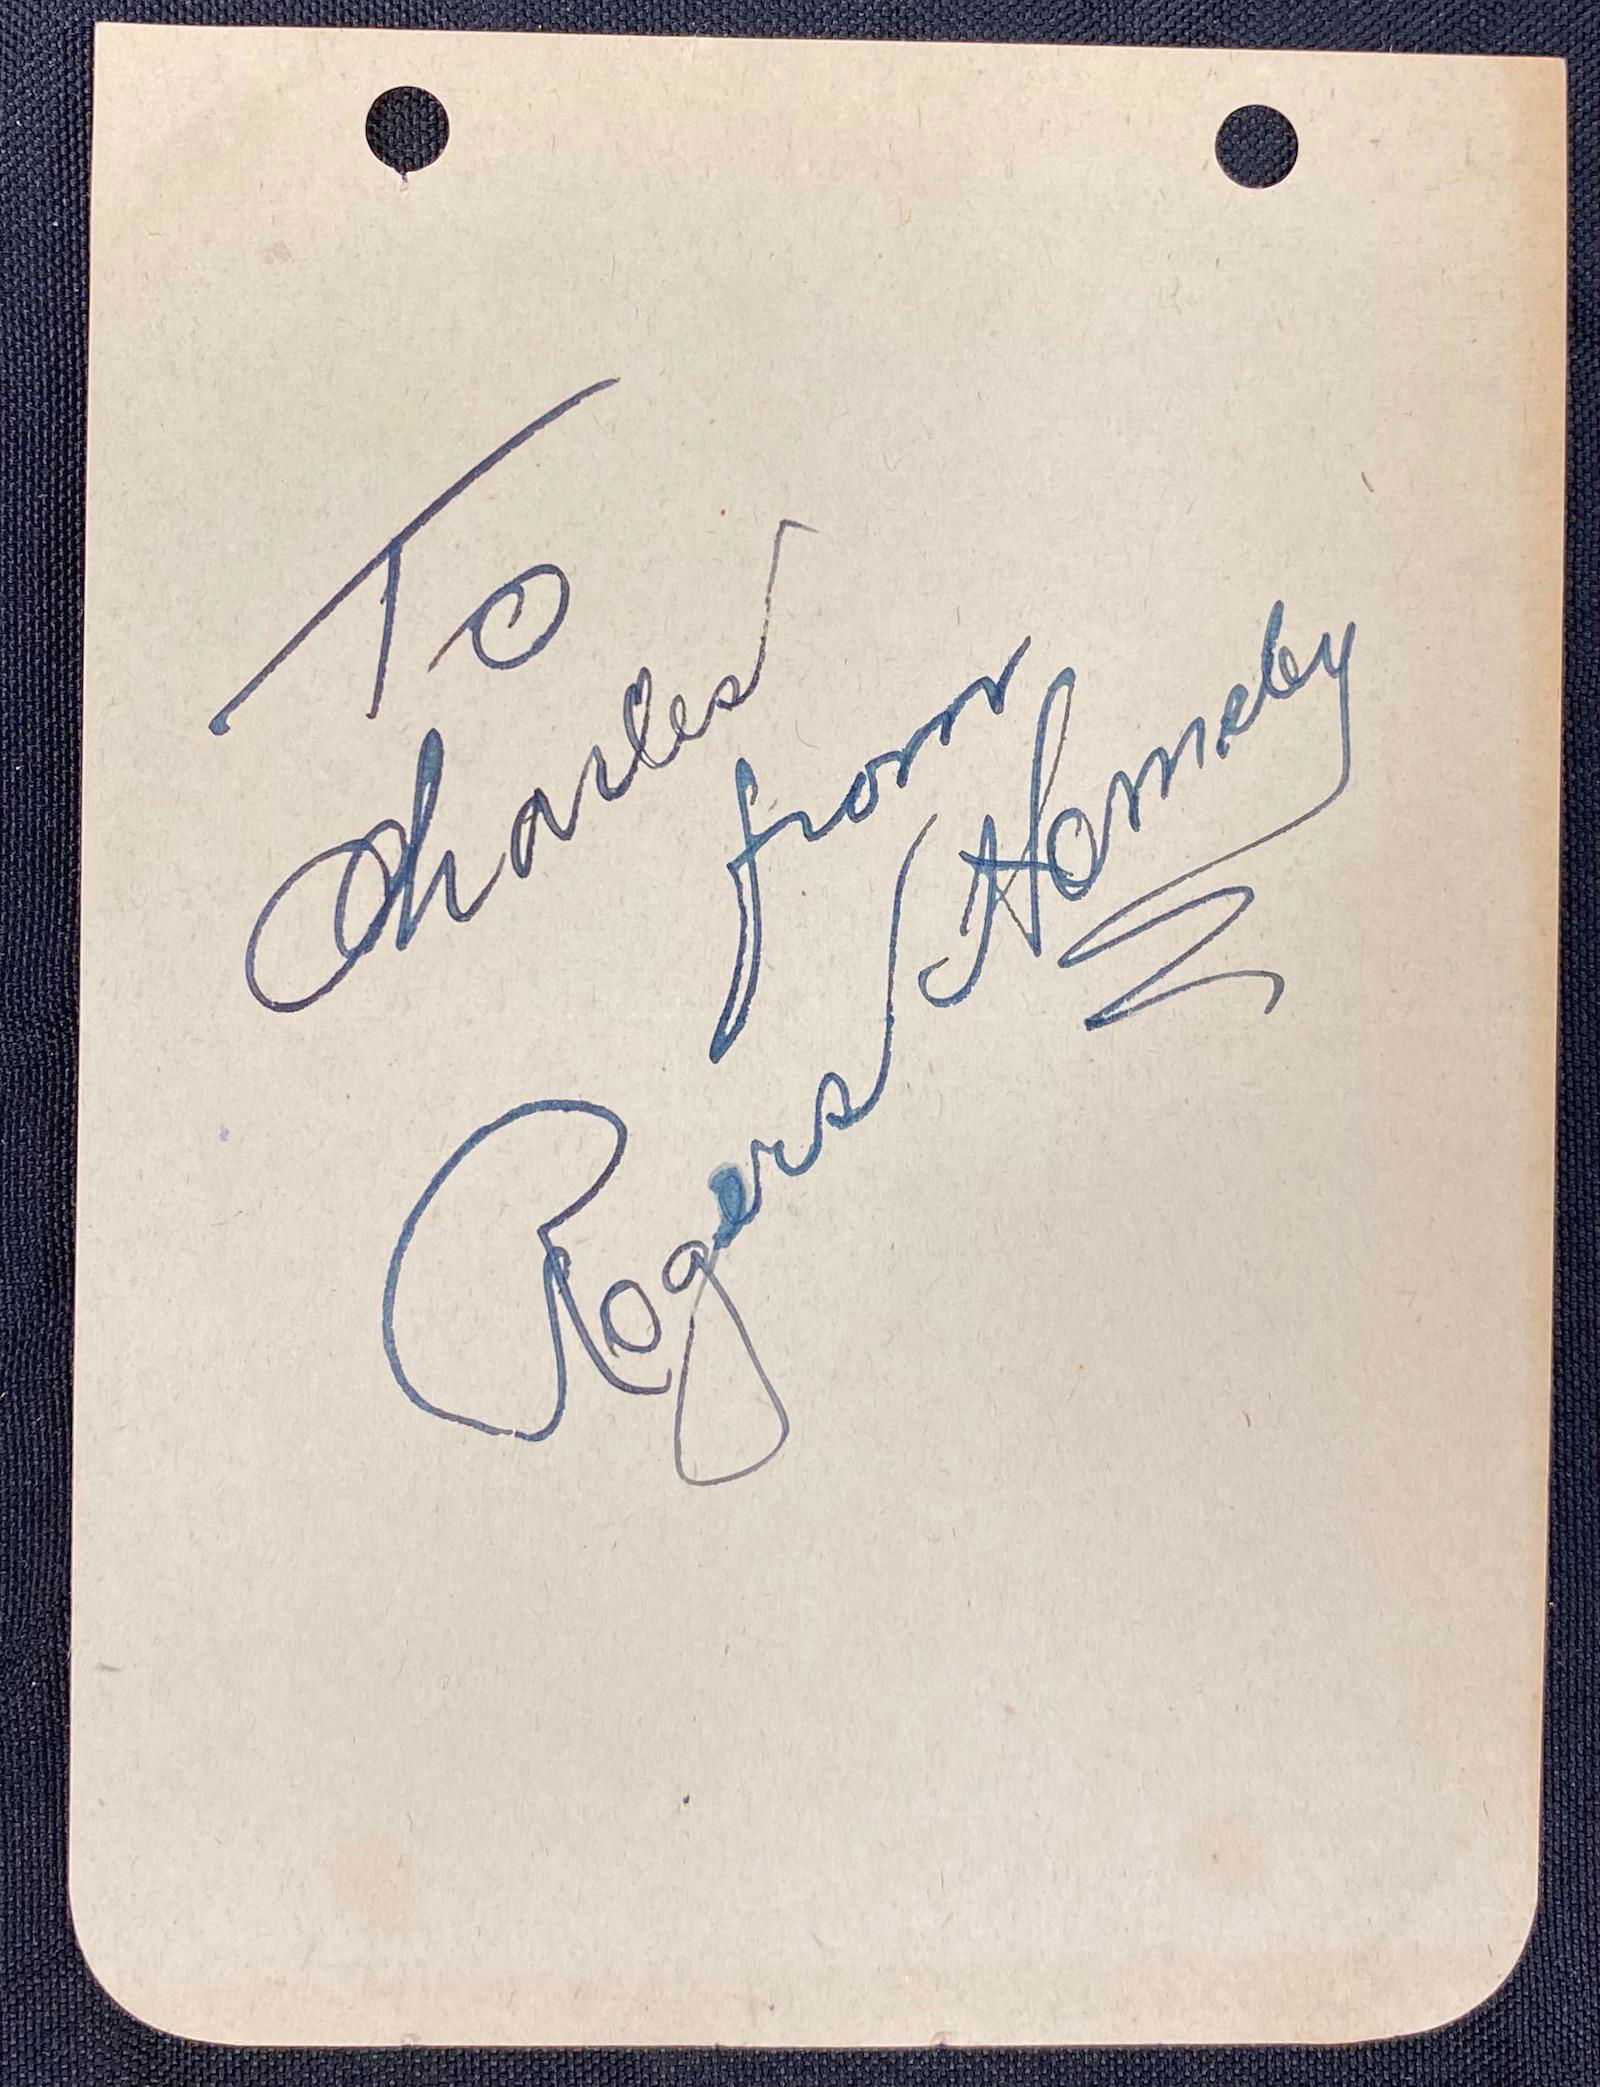 To
Charles
from
Rogers Hornsby